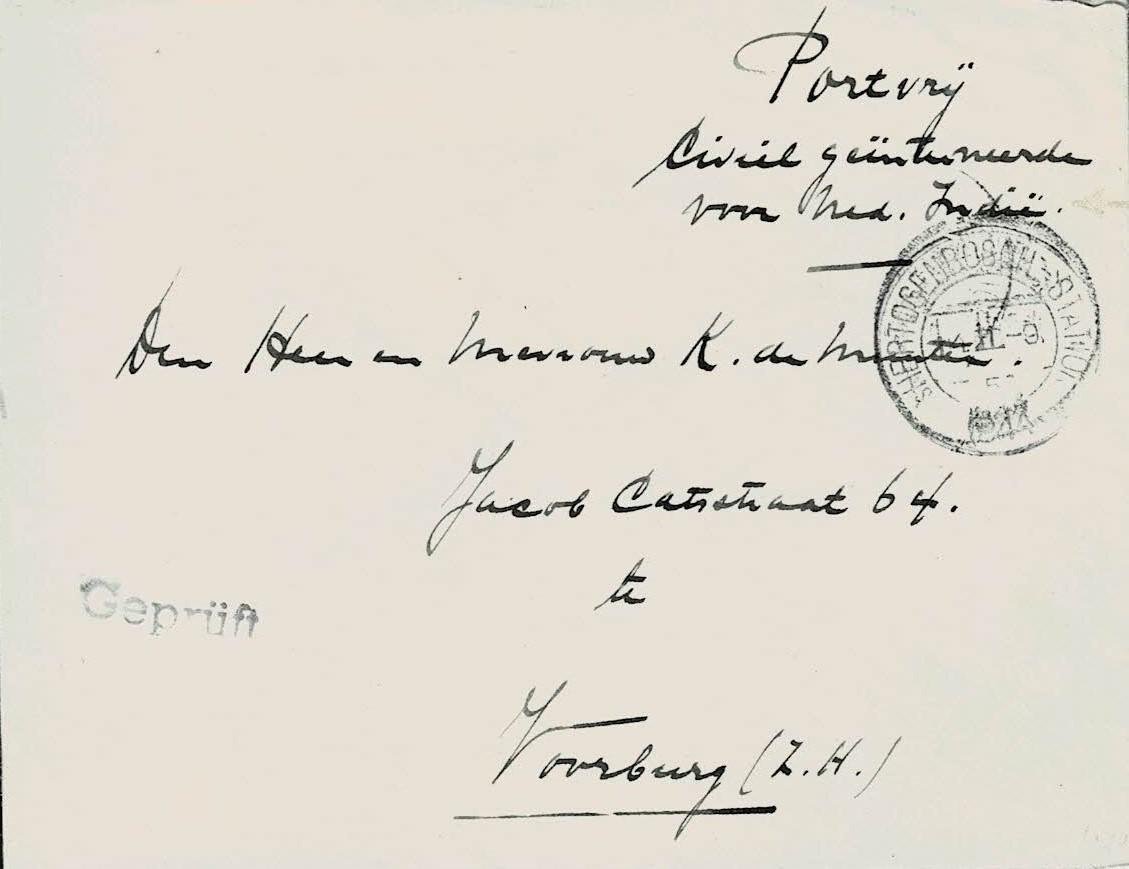 Portvrij
Civiel geïnterneerde
voor Ned. Indië.
'S HERTOGENBOSCH-STATION
1944
Den Heer en Mevrouw K. de Munter.
Jacob Catsstraat 64.
te
Geprüft
Voorburg (Z.H.)